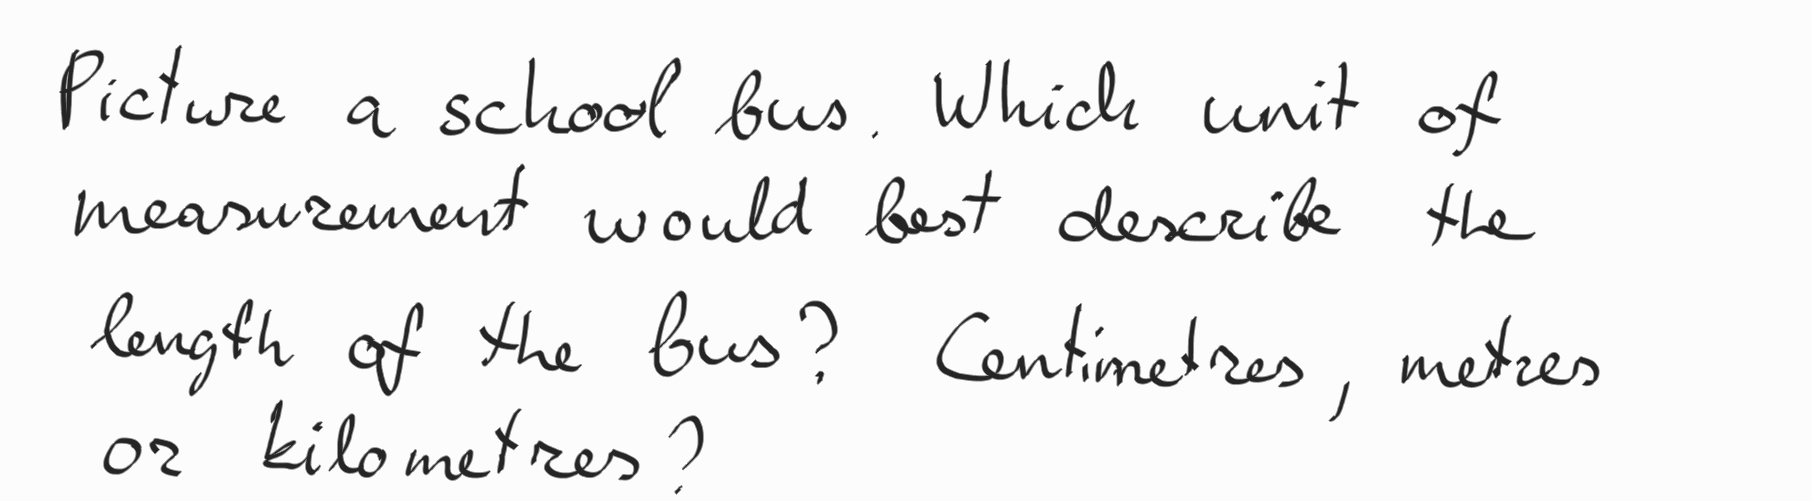 Picture a school bus. Which unit of
measurement would best describe the
length of the bus? Centimetres, metres
or kilometres?